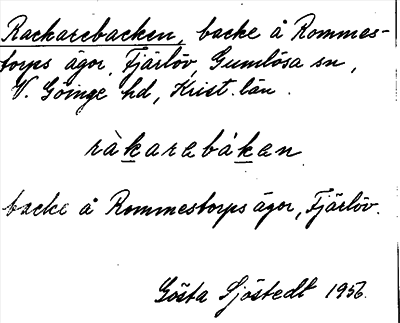 Rackarebacken, backe å Rommes-
torps ägor, Fjärlöv, Gumlösa sn,
V. Göinge hd, Krist. län.
ràkarebákan
backe å Rommestorps ägor, Fjärlöv.
Gösta Sjöstedt 1956.